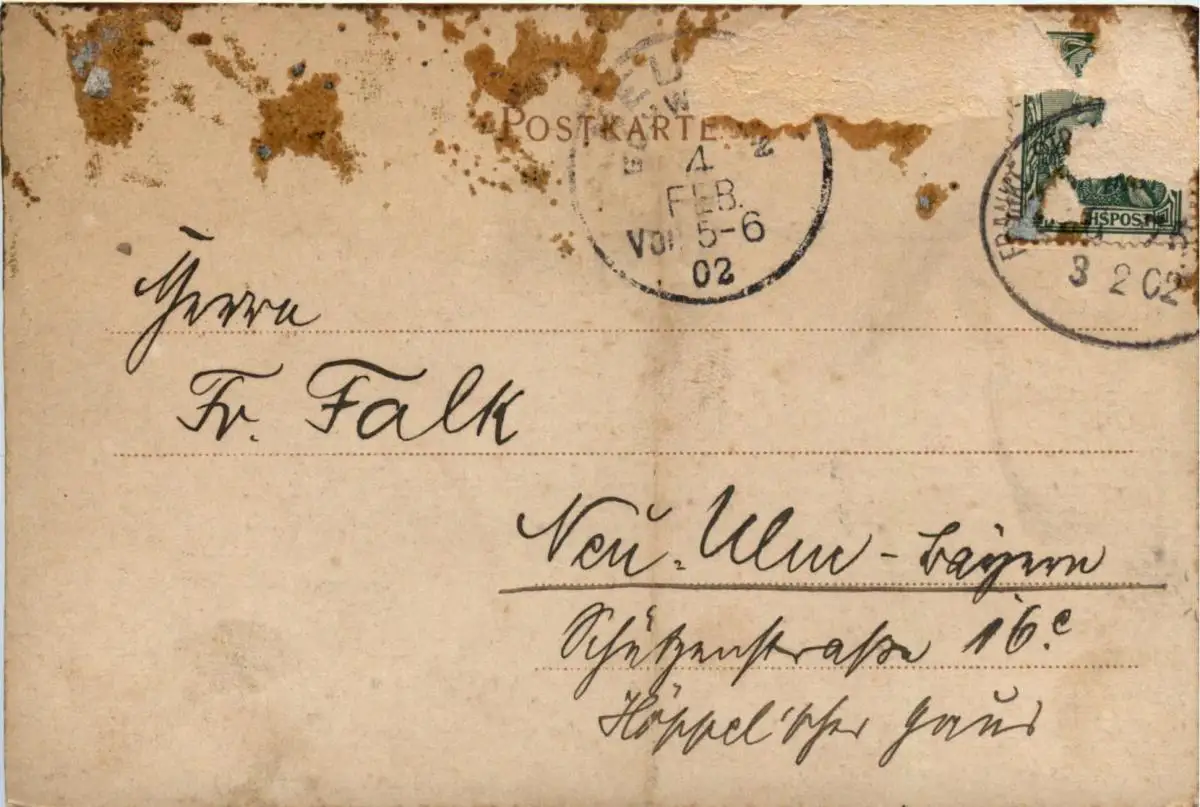 POSTKARTE
4
FEB.
Vor. 5-6
02
HSPOST
3 2 02
Herrn
Fr. Falk
Neu-Ulm - Bayern
Schützenstraße 16c
Höppel'sches Haus